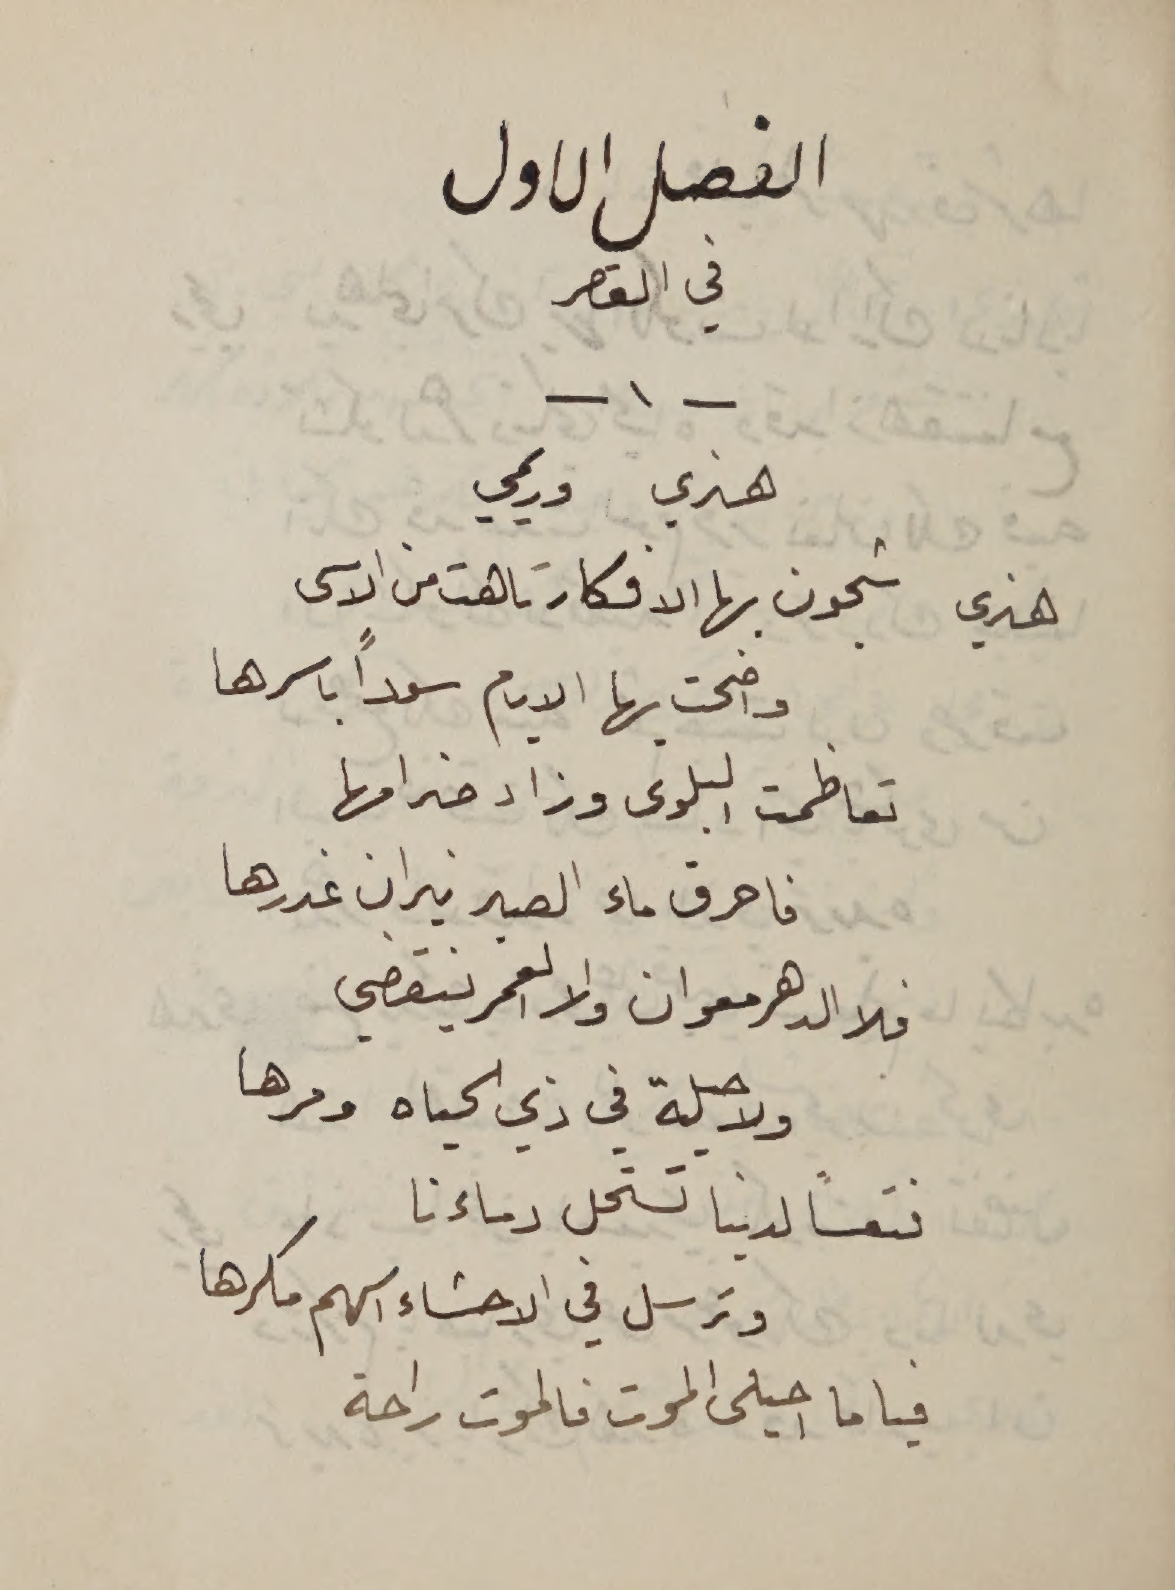 الفصل الاول
في القصر
— ١ —
هنري وريمي
هنري شجون بها الافكار تاهت من الاسى
واضحت بها الايام سوداً باسرها
تعاظمت البلوى وزاد ضرامها
فاحرق ماء الصبر نيران غدرها
فلا الدهر معوان ولا العمر ينقضي
ولا حيلة في ذي الحياه ومرها
فتعساً لدنيا تستحل دماءنا
وترسل في الاحشاء اسهم مكرها
فيا ما احيلى الموت فالموت راحة